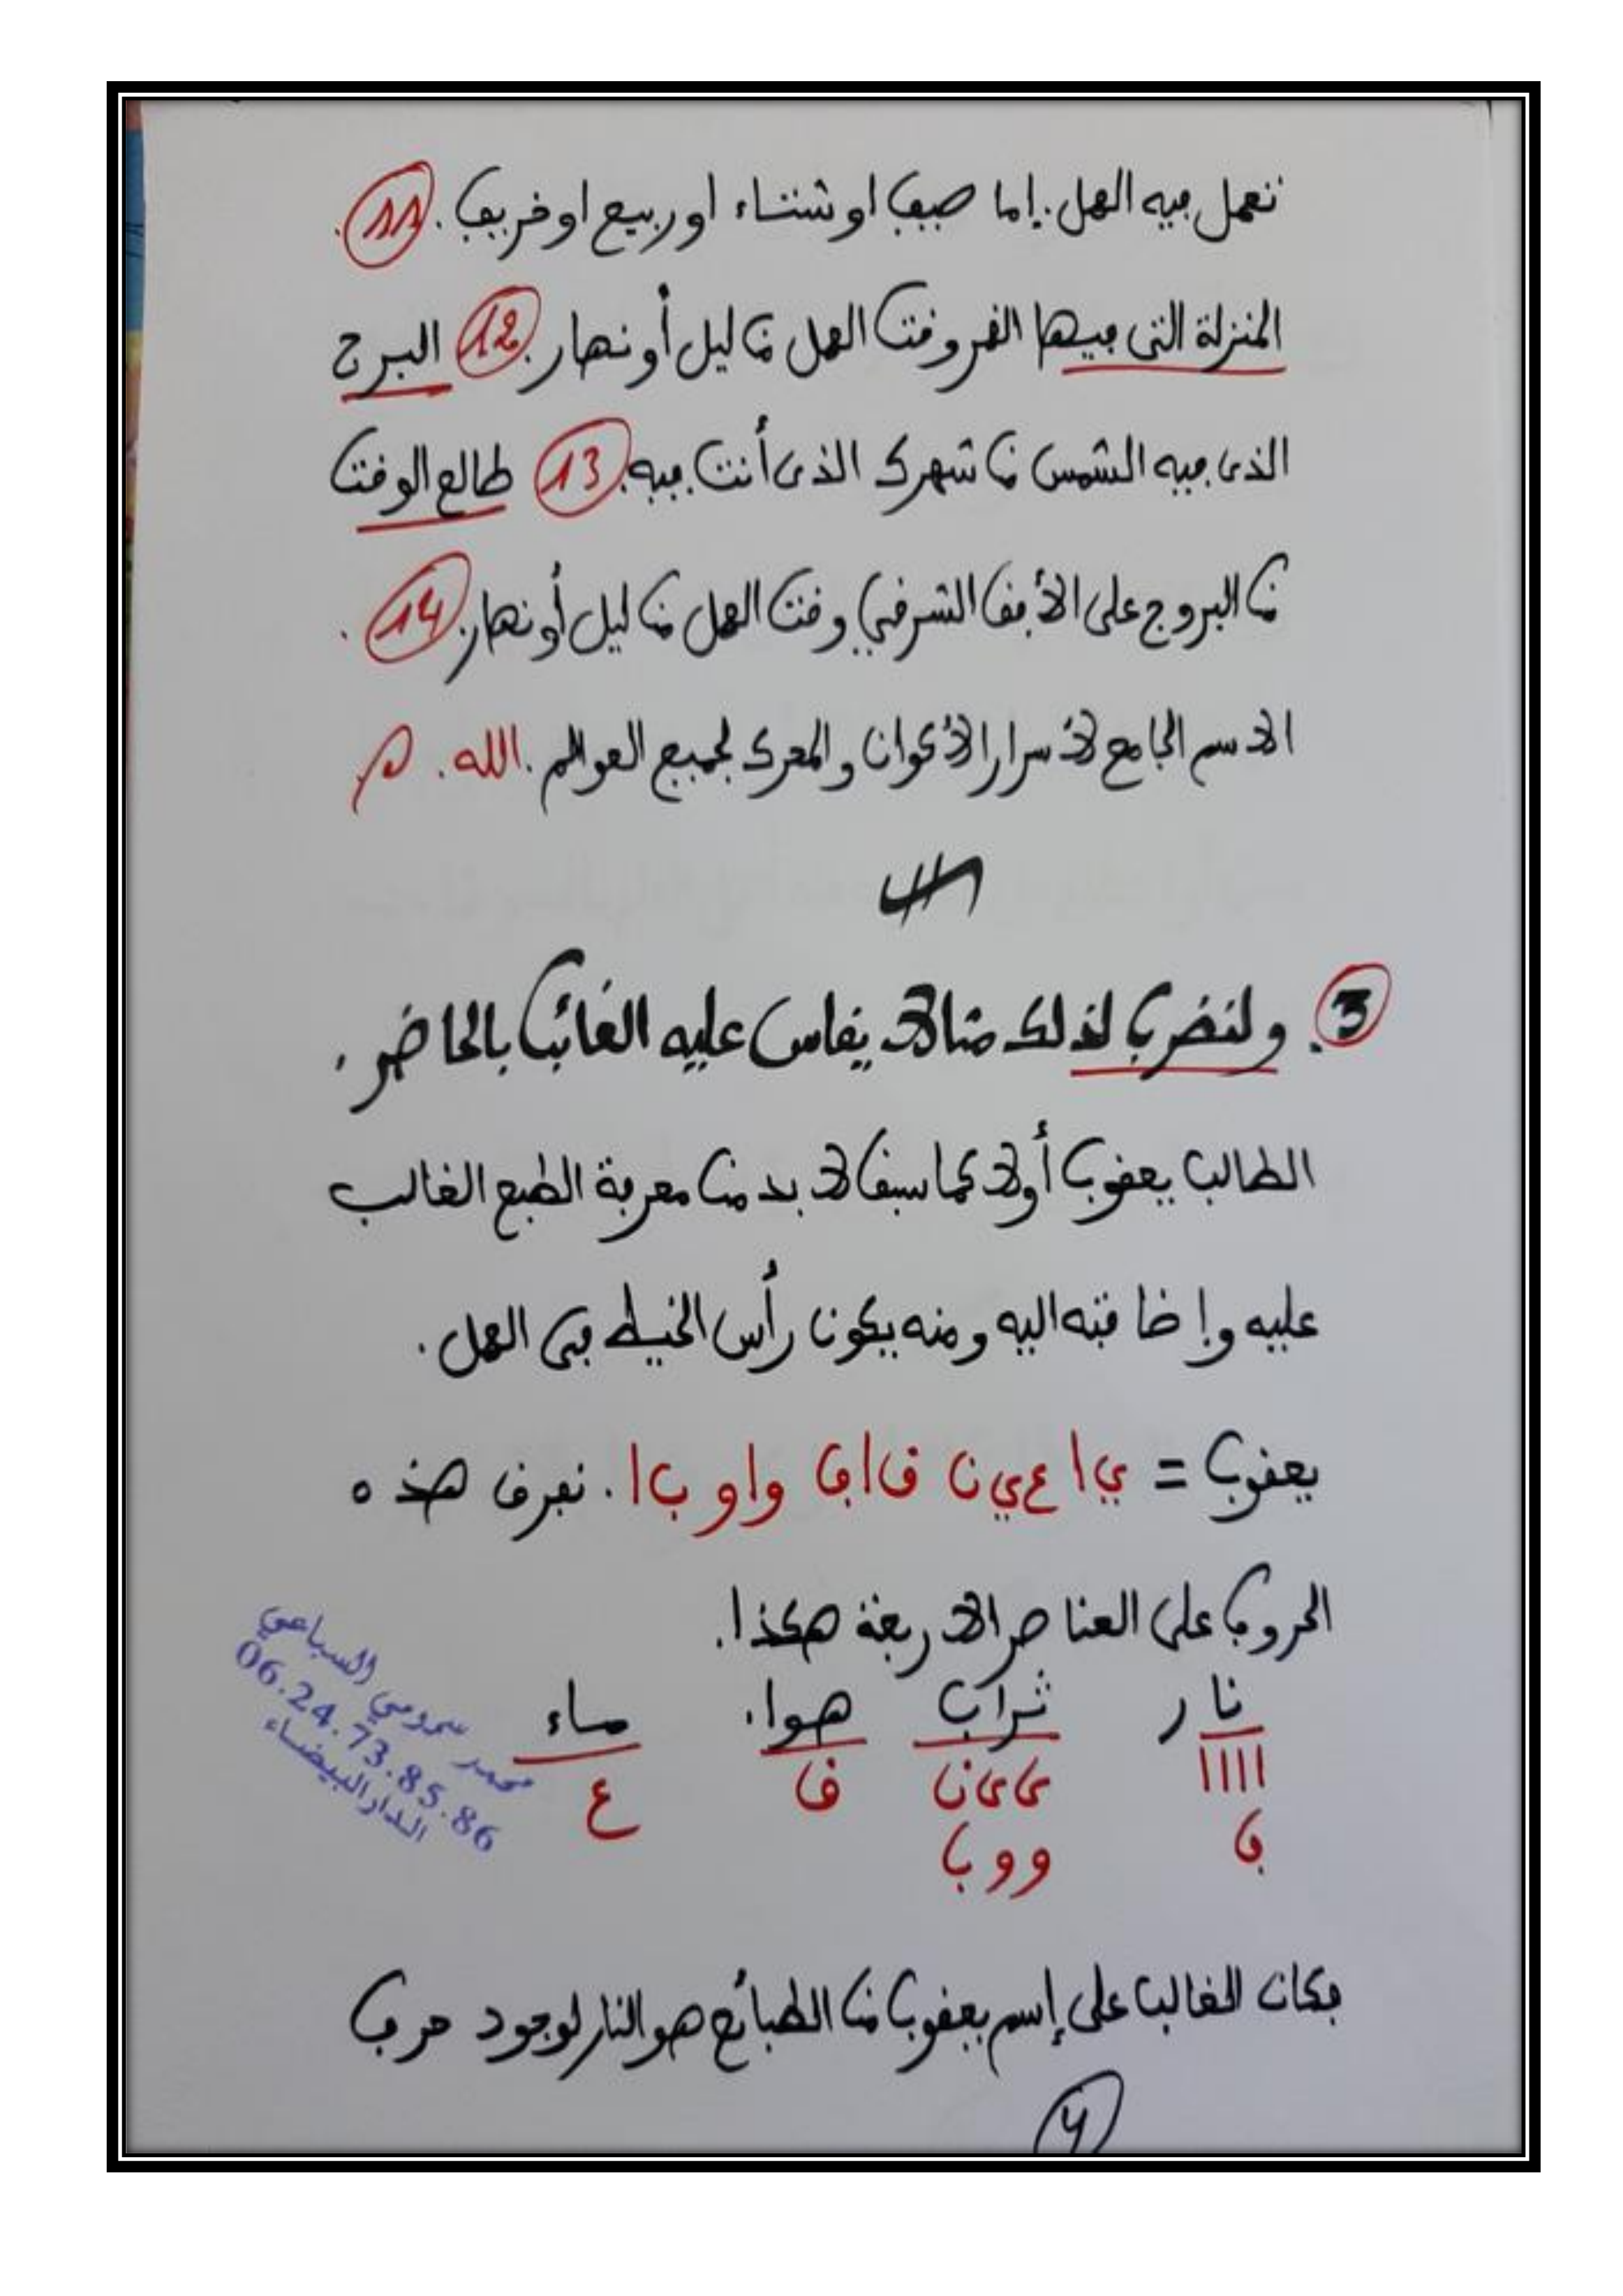 نعمل فيه العمل. إما صيف او شتاء او ربيع او خريف. 11.
المنزلة التى فيها القمر وقت العمل من ليل أو نهار. 12 البرج
الذى فيه الشمس من شهرك الذى أنت فيه. 13 طالع الوقت
من البروج على الأفق الشرقي وقت العمل من ليل أو نهار. 14.
الاسم الجامع لأسرار الأكوان والمحرك لجميع العوالم. الله.
3. ولنضرب لذلك مثالا يقاس عليه الغائب بالحاضر.
الطالب يعقوب أولا كما سبق لا بد من معرفة الطبع الغالب
عليه وإضافته اليه ومنه يكون رأس الخيط فى العمل.
يعقوب = ي ا ع ي ن ق ا ف و ا و ب ا. نفرق هذه
الحروف على العناصر الاربعة هكذا.
نار تراب هوا. ماء
ا ا ا ا ى ى ن ق ع
ف و و ب
محمد سمومي السباعي
06.24.73.85.86
الدار البيضاء
فكان الغالب على إسم يعقوب من الطبائع هو النار لوجود حرف
4